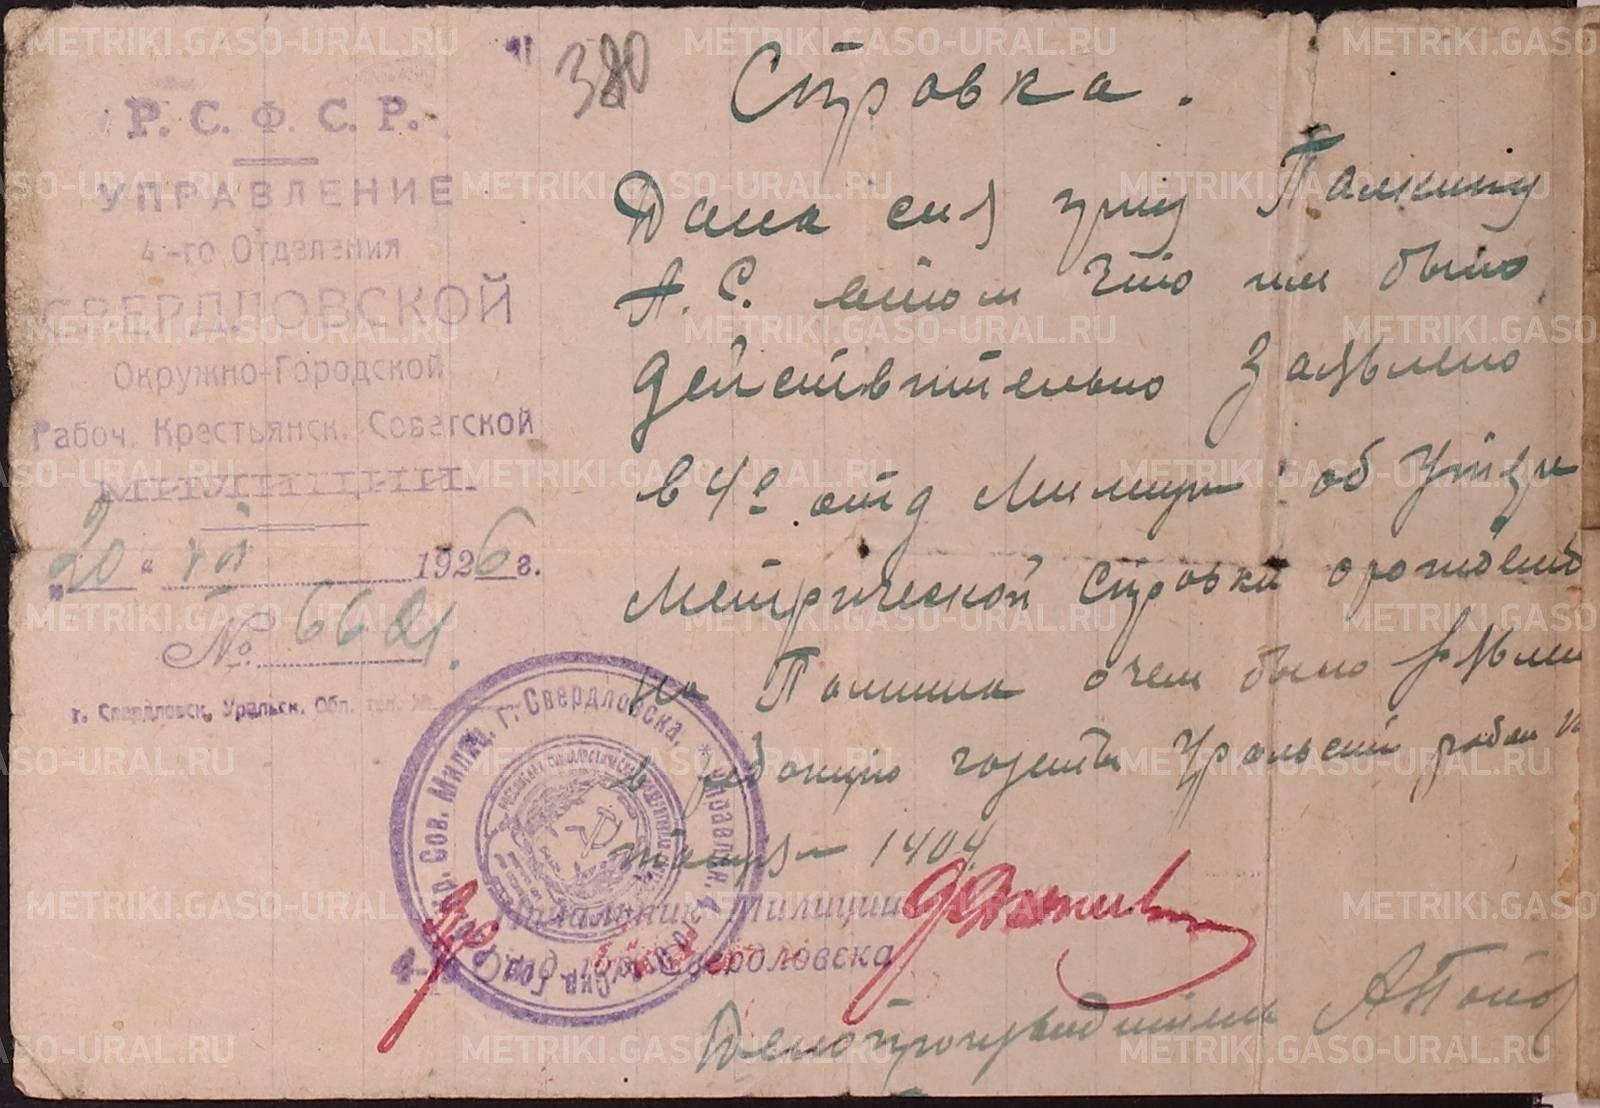 Р. С. Ф. С. Р.
УПРАВЛЕНИЕ
4-го Отделения
СВЕРДЛОВСКОЙ
Окружно-Городской
Рабоч. Крестьянск. Советской
МИЛИЦИИ.
„20" VII 1926 г.
№ 6621.
г. Свердловск, Уральск. Обл. тел. №
380
Справка.
Дана сия гр-ну Палкину
А. С. в том что им было
действительно заявлено
в 4е отд Милиции об утери
Метрической справки о рождении
на Палкина о чем было заявлено
в редакцию газеты Уральский рабочий
1404
Начальник Милиции
4-го Отд. гор. Свердловска
Делопроизводитель
г. Свердловска. * Управлен. 4
METRIKI.GASO-URAL.RU